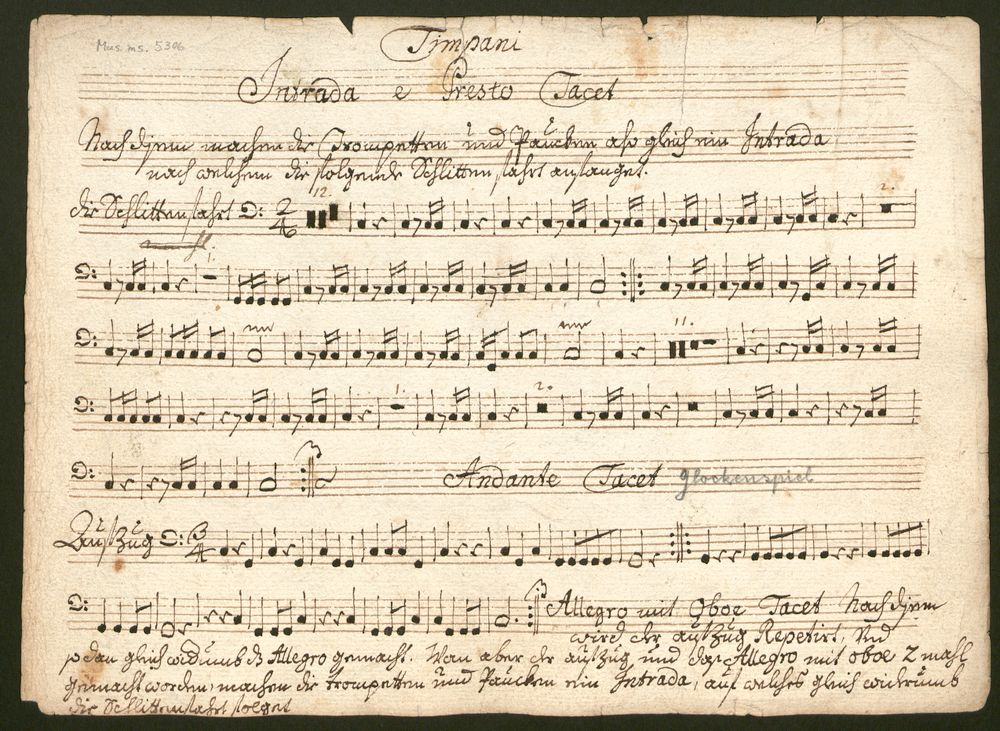 Mus. ms. 5306
Timpani
Intrada e Presto Tacet
Nach disem machen die Trompetten und Paucken also gleich ein Intrada
nach welchem die folgende Schlittenfahrt anfanget.
die Schlittenfahrt 2/4 12. 2.
1.
11.
1. 2.
Andante Tacet Glockenspiel
Auffzug 3/4
Allegro mit Oboe Tacet Nach disem
wird der auffzug Repetirt, Und
so dan gleich widerumb ds Allegro gemacht. Wan aber der auffzug und das Allegro mit oboe 2 mahl
gemacht worden, machen die trompetten und Paucken ein Intrada, auf welches gleich widerumb
die Schlittenfahrt folget